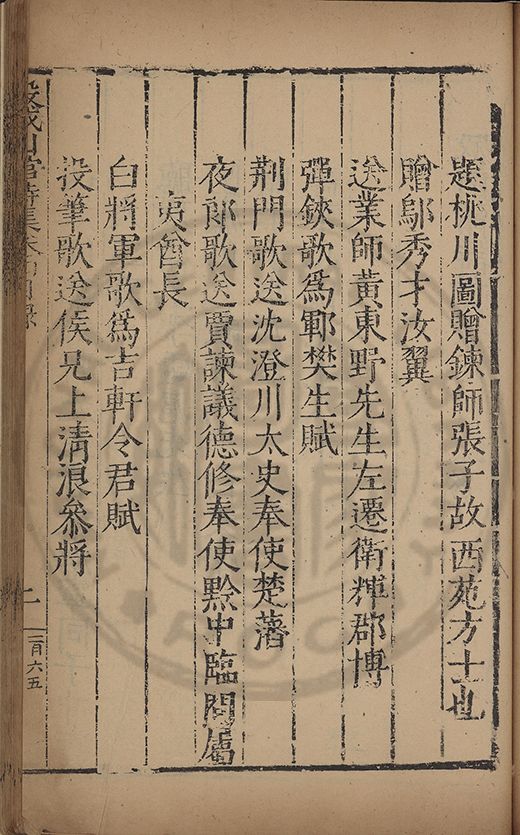 題桃川圖贈鍊師張子故西苑方士也
贈鄔秀才汝翼
送業師黃東野先生左遷衛輝郡博
彈鋏歌爲鄆樊生賦
荆門歌送沈澄川太史奉使楚藩
夜郎歌送賈諫議德修奉使黔中臨閱屬
夷酋長
白將軍歌爲吉軒令君賦
投筆歌送侯兄上清浪叅將
詩集 目录
二 一百六五